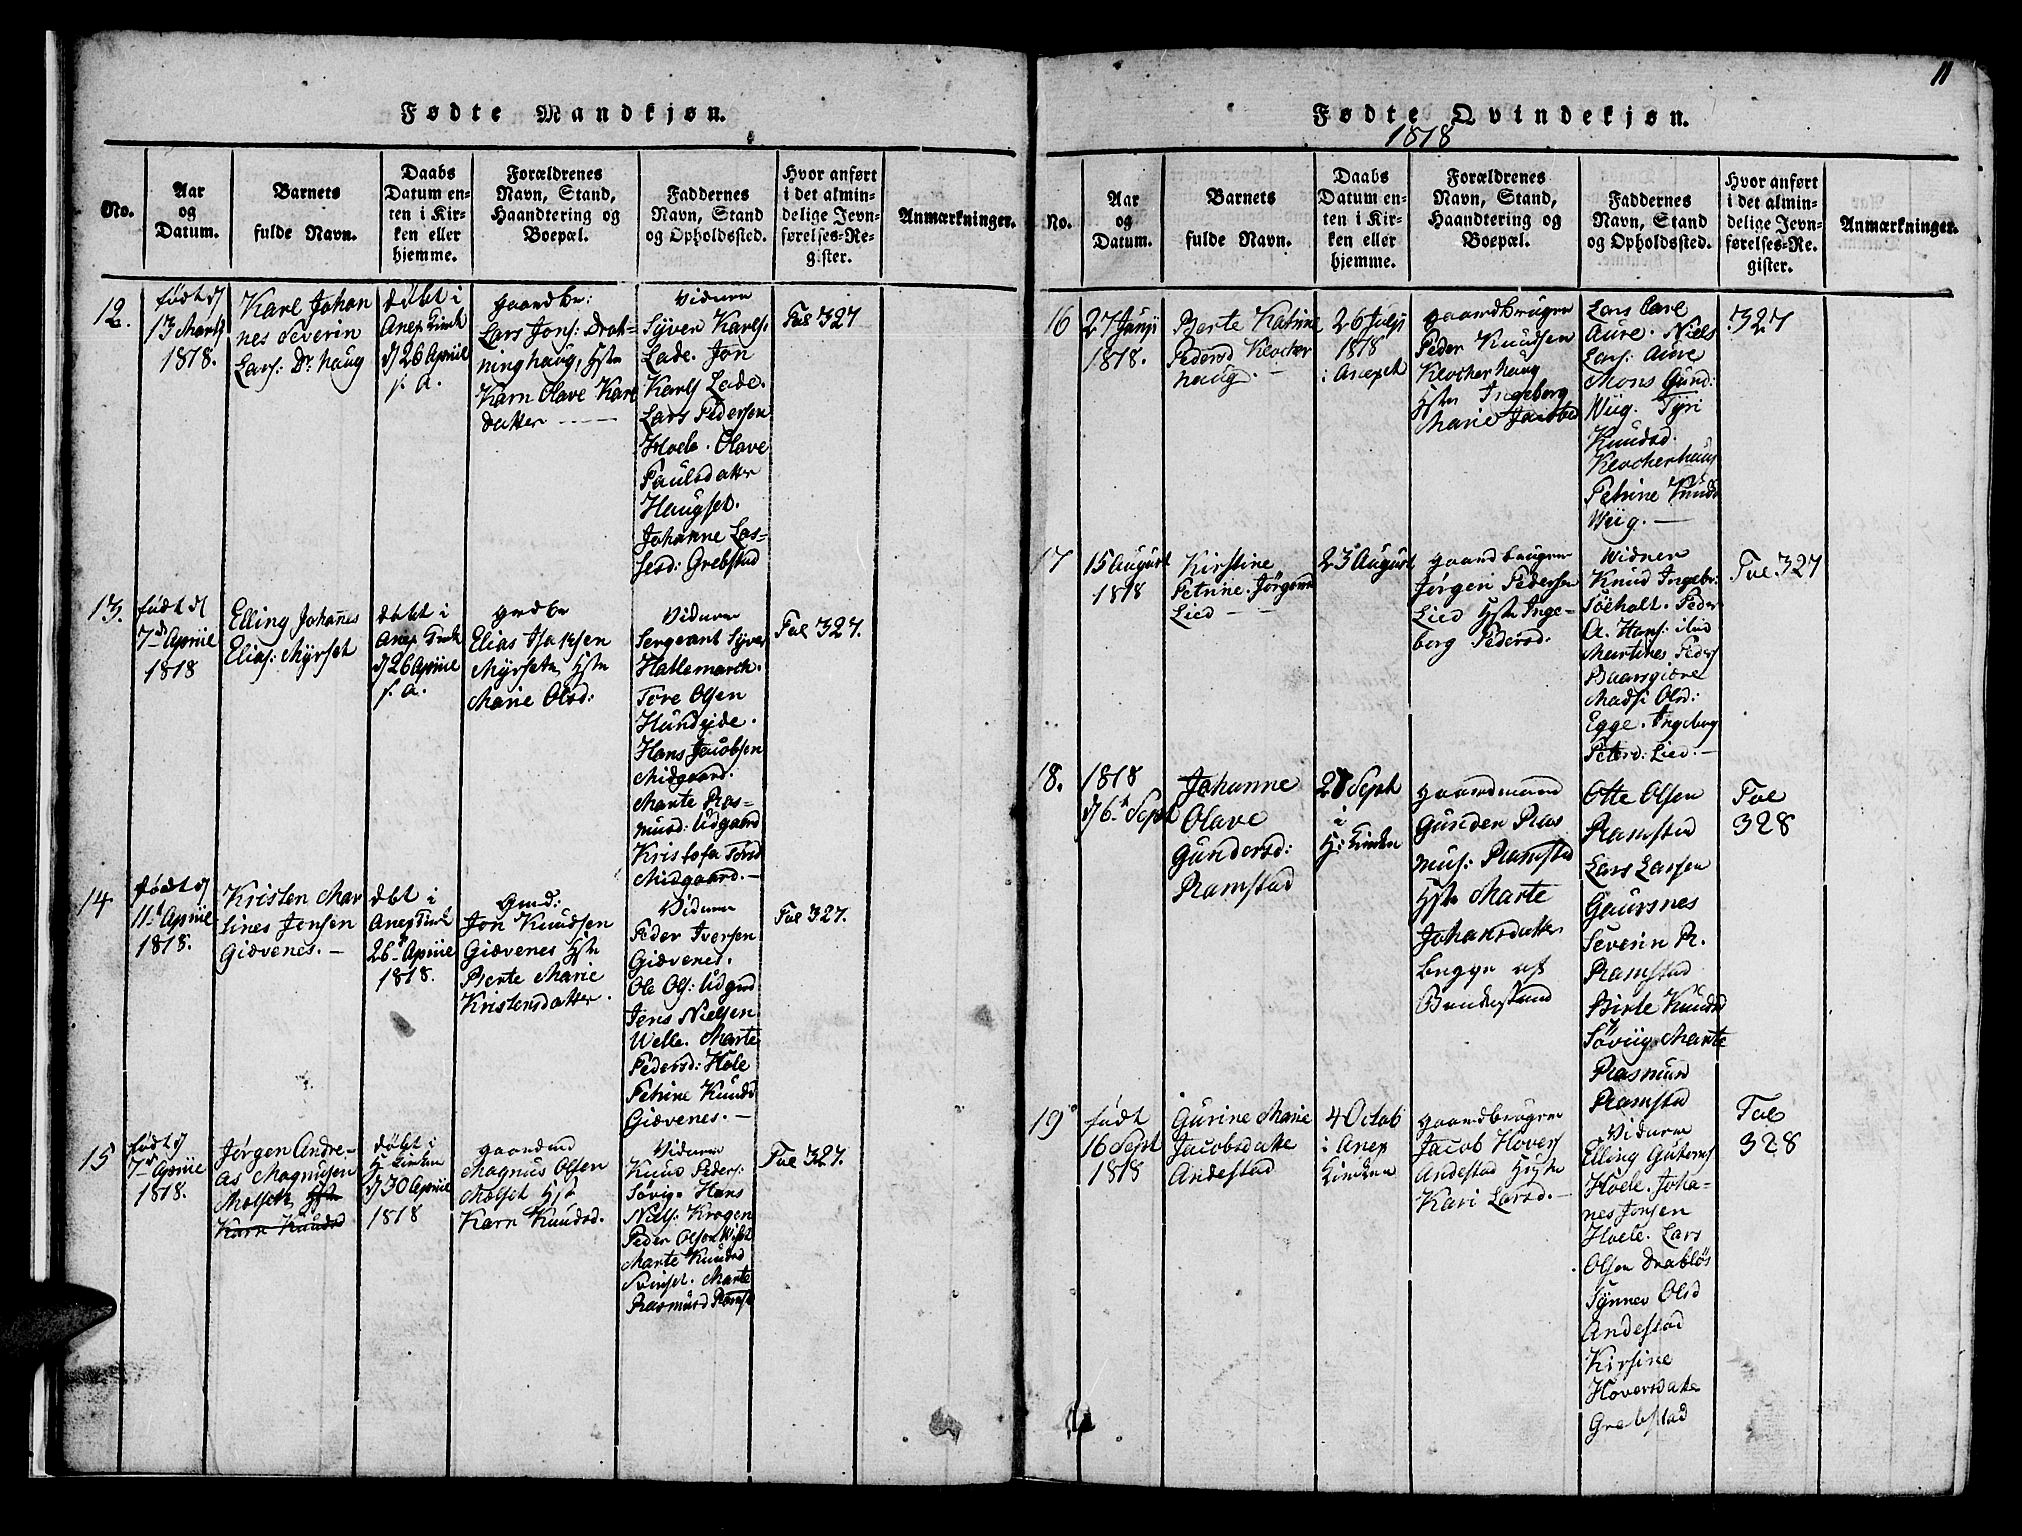 Fødte Mandkjøn.
No.
Aar
og
Datum.
Barnets
fulde Navn.
Daabs
Datum en-
ten i Kir-
ken eller
hjemme.
Forældrenes
Navn, Stand,
Haandtering og
Boepæl.
Faddernes
Navn, Stand
og Opholdssted.
Hvor anført
i det almin-
delige Jevn-
førelses-Re-
gister.
Anmærkninger.
12.
født d
13 Marts
1818.
Karl Johan
nes Severin
Lars: Dr: haug
døbt i
Anex Kirk
d 26 April
s. a.
gaardbr:
Lars Jons: Drot-
ninghaug, Hstr
Karn Olave Karl
datter
Vidnerne
Syver Karls.
Lade. Jon
Karls Lade.
Lars Pedersen
Hoele. Olave
Paulsdatter
Haugset.
Johanne Las-
sesd: Grebstad
Fol 327
13.
født d
7de April
1818
Elling Johanes
Elias: Myrset
døbt i
Anex Kirk
d 26 April
s. a.
grdbr
Elias Isaksen
Myrset Hstr
Marie Olsd:
Vidnerne
Sergeant Syver
Hallemarck.
Tore Olsen
Hundeide.
Hans Jacobsen
Midgaard.
Marte Ras-
musd: Udgaard
Kristofa Torsd
Midgaard.
Fol 327.
14
født d
11te April
1818.
Kristen Mar
tines Jonsen
Giævenes.
døbt i
Anex Kirk
26de April
1818.
Grmd:
Jon Knudsen
Giævenes Hstr
Pernte Marie
Kristensdatter.
Vidnerne
Peder Iversen
Giævenes.
Ole Ols: Udgrd
Jens Nielsen
Welle. Marte
Pedersd: Hole
Petrine Knudsd
Giævenes.
Fol 327.
15
født d
7de April
1818.
Jørgen Andre-
as Magnusen
Molset Hstr
Karn Knudsd
døbt i
H Kirken
d 30 April
1818
gaardmd
Magnus Olsen
Molset Hst
Karn Knudsd.
Vidnerne
Knud Peders:
Søvig. Hans
Niels: Krogen
Peder Olsen
Marte Knudsd
Svinset. Marte
Rasmusd Ramst
Fol 327.
11
Fødte Qvindekjøn.
1818
No.
Aar
og
Datum.
Barnets
fulde Navn.
Daabs
Datum en-
ten i Kir-
ken eller
hjemme.
Forældrenes
Navn, Stand,
Haandtering og
Boepæl.
Faddernes
Navn, Stand
og Opholdssted.
Hvor anført
i det almin-
delige Jevn-
førelses-Re-
gister.
Anmærkninger.
16
27 Junji
1818.
Berte Katrine
Pedersd Klocker
haug.
26 Julji
1818
i Anexet
gaardbruger
Peder Knudsen
Klockerhaug
Hstr Ingeborg
Marie Jacobsd
Lars Carl
Aure. Niels
Lars: Aure
Mons Gund:
Wiig. Tyri
Knudsd.
Klockerhaug
Petrine Knudsd
Wiig.
327
17
15 August
1818
Kirstine
Petrine Jørgensd
Lied
23 August
gaardbruger
Jørgen Pedersen
Lied Hstr Inge-
borg Pedersd.
Widner
Knud Ingebr:
Søeholt. Peder
A. Hans:
Martines Peders
Baarsgiære
Madsi Olsd:
Egge. Ingeborg
Petersd: Lied.
Fol 327
18.
1818
d 6te Sept
Johanne
Olave
Gundersd:
Ramstad
27 Sept
i
H: Kirken
gaardmand
Gunden Ras
mus: Ramstad
Hstr Marte
Johansdatter
begge af
Bondestand
Otte Olsen
Ramstad
Lars Larsen
Gaursnes
Severin R.
Ramstad
Birte Knudsd
Søviig. Marte
Rasmusd
Ramstad
Fol
328
19
født
16 Sept
1818
Gurine Marie
Jacobsdatte
Andestad
4 Octob
i Anex
Kirken
gaardbruger
Jacob Hovers
Andestad Hustr
Kari Larsd.
Vidnerne
Elling Gutorms
Hoele. Joha-
nes Jonsen
Hoele. Lars
Olsen Drabløs
Synnev Olsd
Andestad
Kirsine
Hoversdatte
Grebstad
Fol
328